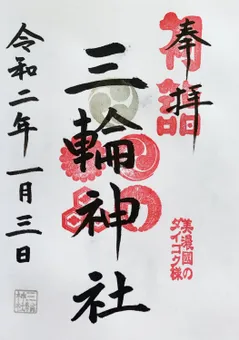 奉拝
初詣
三輪神社
美濃國の
ダイコク様
令和二年一月三日